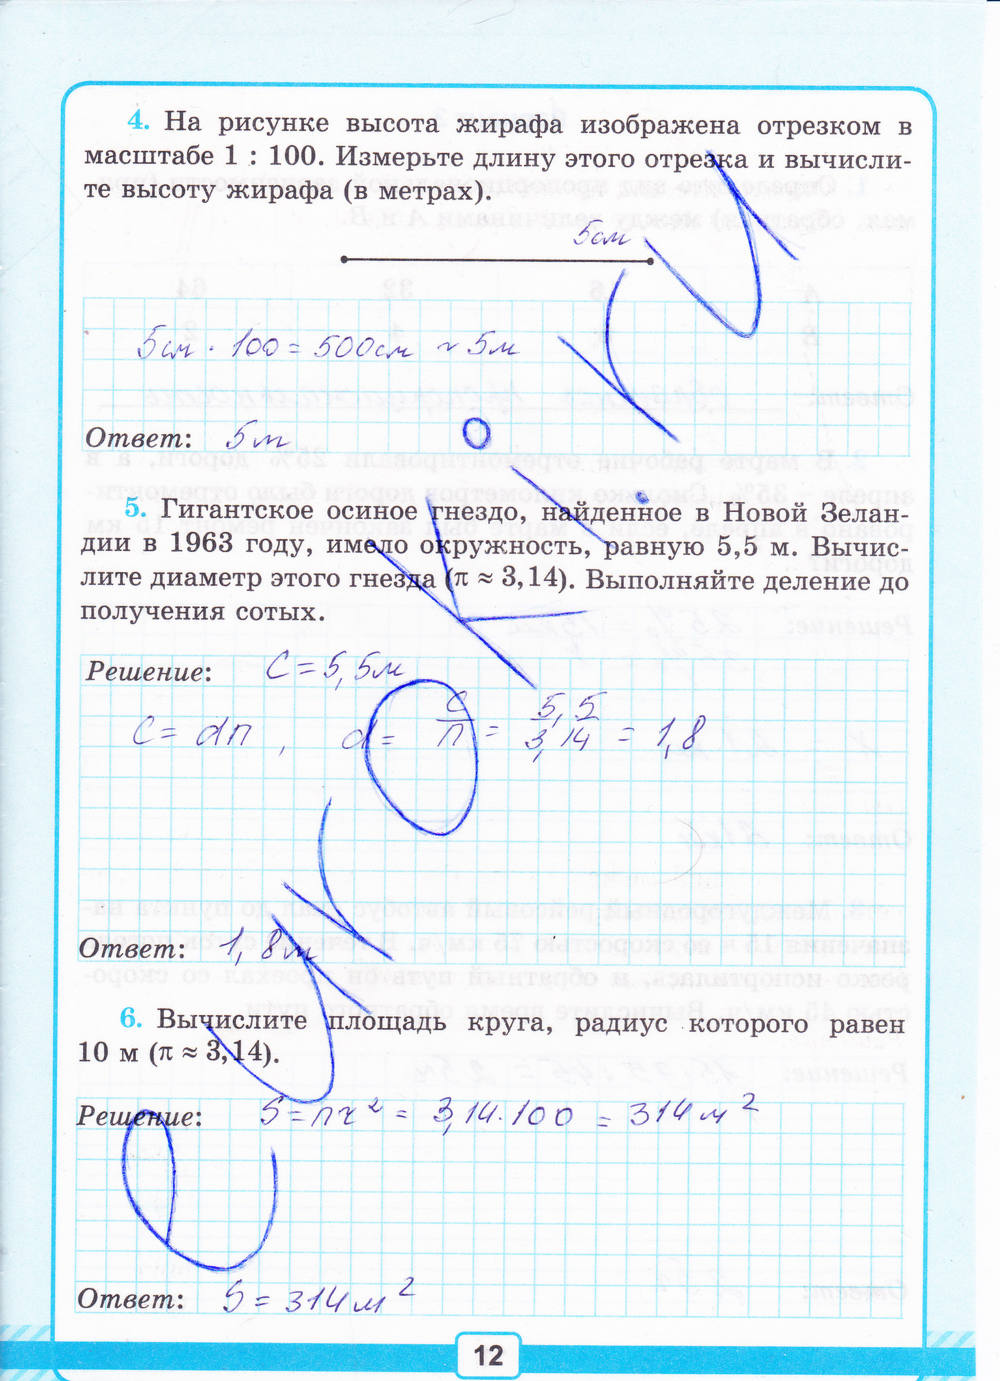 4. На рисунке высота жирафа изображена отрезком в
масштабе 1 : 100. Измерьте длину этого отрезка и вычисли-
те высоту жирафа (в метрах).
5см
5см · 100 = 500см ~ 5м
Ответ: 5м
5. Гигантское осиное гнездо, найденное в Новой Зелан-
дии в 1963 году, имело окружность, равную 5,5 м. Вычис-
лите диаметр этого гнезда (π ≈ 3,14). Выполняйте деление до
получения сотых.
Решение: C = 5,5м
C = dп , d = C/п = 5,5/3,14 = 1,8
Ответ: 1,8м
6. Вычислите площадь круга, радиус которого равен
10 м (π ≈ 3,14).
Решение: S = пr² = 3,14 · 100 = 314 м²
Ответ: S = 314 м²
12